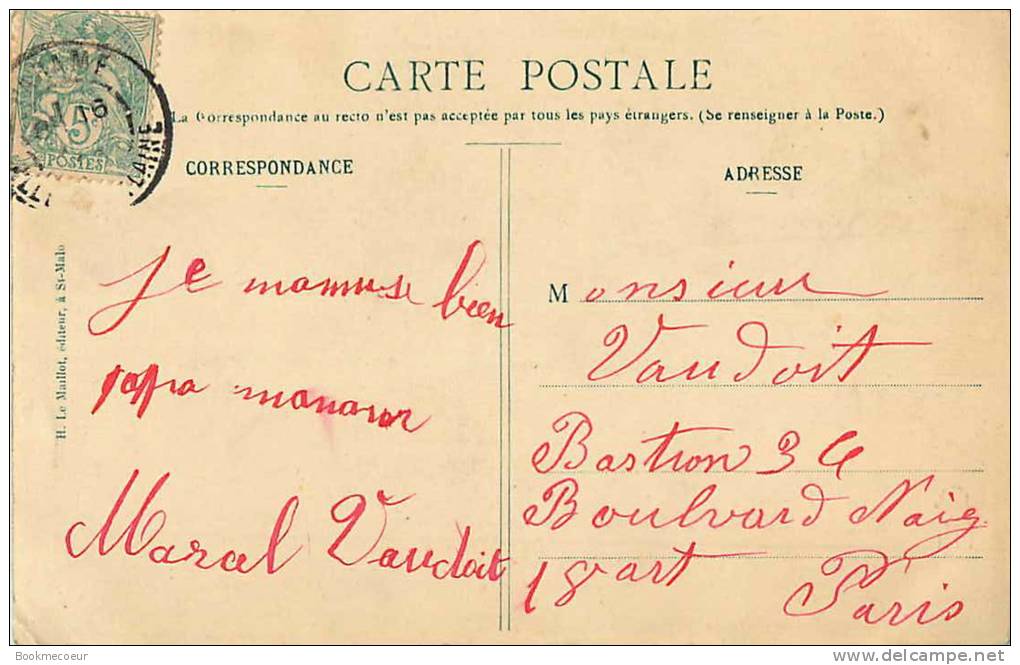 CARTE POSTALE
La Correspondance au recto n'est pas acceptée par tous les pays étrangers. (Se renseigner à la Poste.)
CORRESPONDANCE
ADRESSE
5
POSTES
H. Le Maillot, éditeur, à St-Malo
Je mamuse bien
papa
Marcel Vaudoit
Monsieur
Vaudoit
Bastion 36
Boulvard
18 art
Paris
Bookmecoeur
www.delcampe.net